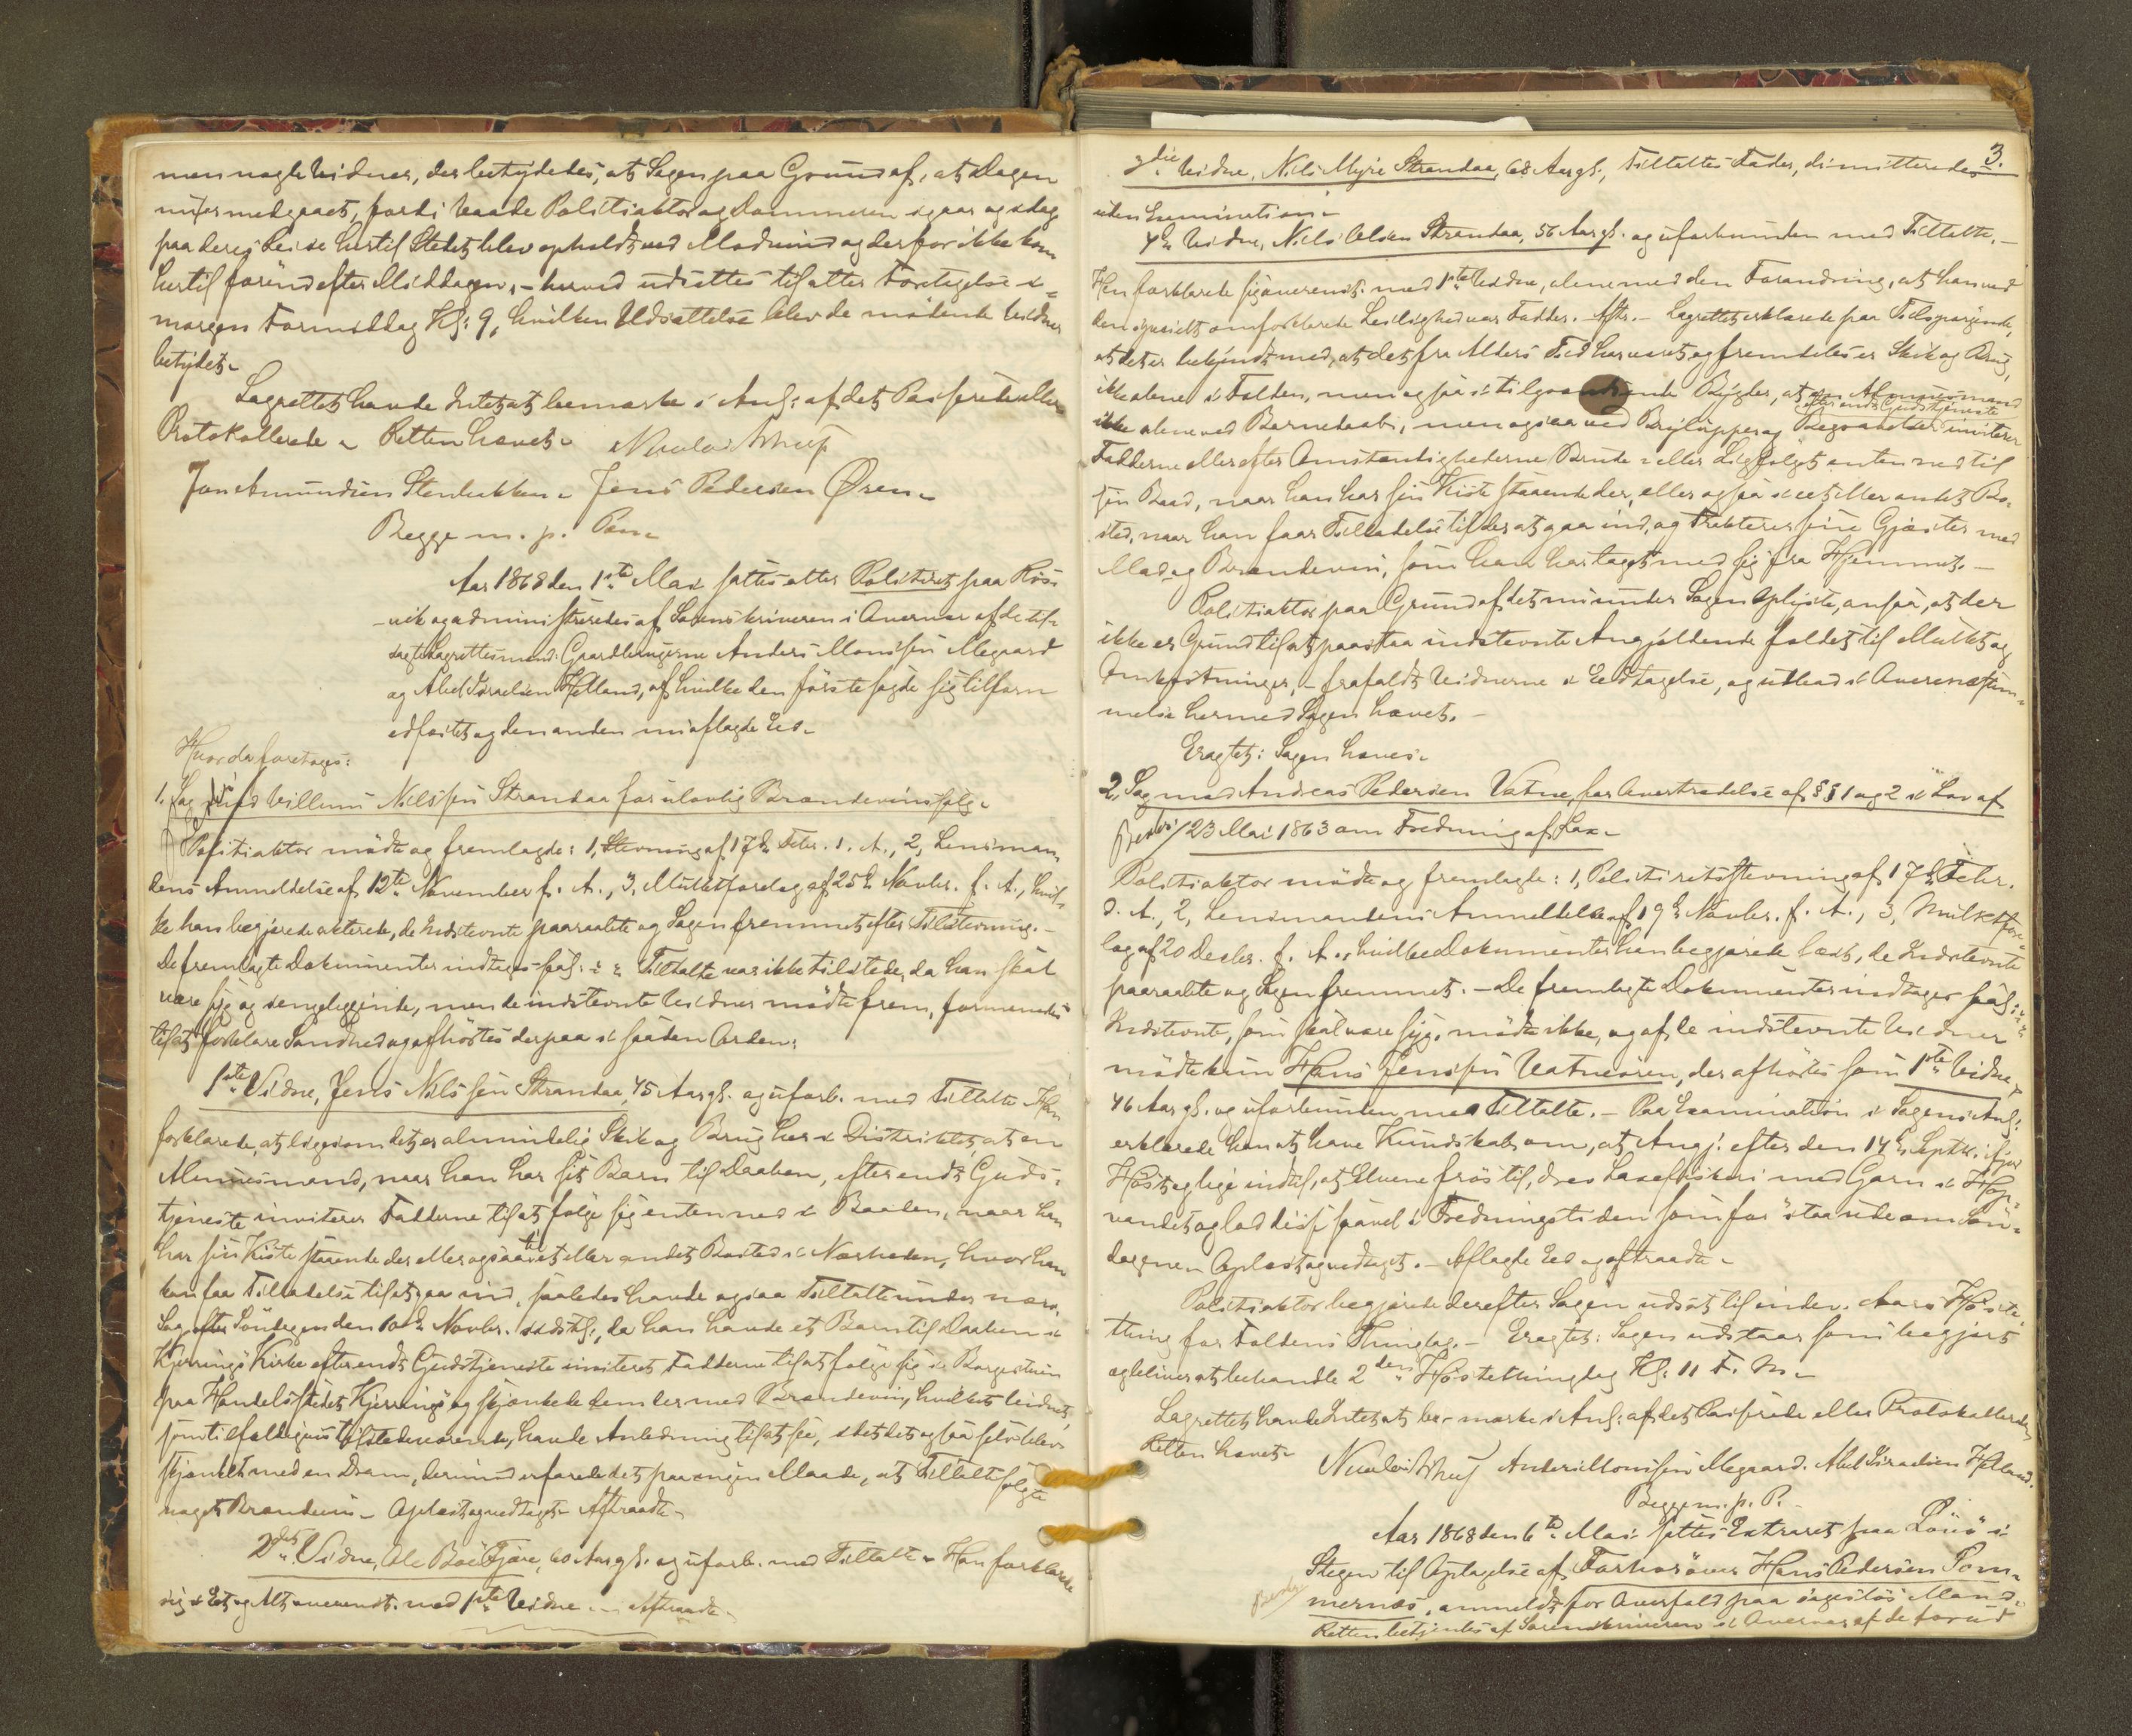 men nogle Vidner, der betydedes, at Sagen paa Grund af, at Dagen
nu er medgaaet, fordi baade Politiaktor og Dommeren igaar og idag
paa deres Reise hertil Stedet blev opholdt ved Modvind og derfor ikke kom
hertil førend efter Middagen, - herved udsættes til atter Foretagelse i-
morgen Formiddag Kl: 9, hvilken Udsættelse blev de mødende Vidner
betydet.
Lagrettet havde Intet at bemærke i Anl: af det Passerede eller
Protokollerede. Retten hævet.
Jon Amundsen Stenbakken. Jens Pedersen Øren.
Begge m. p. Pen.
Aar 1868 den 1ste Mai sattes atter Politiret paa Røs-
vik og administreredes af Sorenskriveren i Overvær af de til-
sagte Lagrettesmænd: Gaardbrugerne Anders Monssen Megaard
og Abel Israelsen Helland, af hvilke den første sagde sig tilforn
edfæstet og den anden nu aflagde Ed.
Hvorda foretoges:
1. Sag mod Villum Nilssen Strandaa for ulovlig Brændevinssalg.
Politiaktor mødte og fremlagde: 1, Stevning af 17de Febr. d. A., 2, Lensman-
dens Anmeldelse af 12te November f. A., 3, Mulktforelag af 25de Novbr. f. A., hvil-
ke han begjærede akterede, de Indstevnte paaraabte og Sagen fremmet efter Tilstevning. -
De fremlagte Dokumenter indtages saal: Tiltalte var ikke tilstede, da han skal
være syg og sengeliggende, men de indstevnte Vidner mødte frem, formanedes
til at forklare Sandhed og afhørtes derpaa i saaden Orden:
1ste Vidne, Jens Nilssen Strandaa, 45 Aar gl. og uforb. med Tiltalte. Han
forklarede, at ligesom det er almindelig Skik og Brug her i Distriktet, at en
Almuesmand, naar han har sit Barn til Daaben, efter endt Guds-
tjeneste inviterer Fadderne til at følge sig enten ned i Baaden, naar han
har sin Kiste staaende der eller ogsaa til et eller andet Bosted i Nærheden, hvor han
kan faa Tilladelse til at gaa ind, saaledes havde ogsaa Tiltalte under nærv.
Sag Søndagen den 10de Novbr. sidstl:, da han havde et Barn til Daaben i
Kjerringø Kirke efter endt Gudstjeneste inviteret Fadderne til at følge sig i Borgestuen
paa Handelsstedet Kjerringø og skjænkede dem der med Brændevin, hvilket Vidnet,
som tilfældigvis tilstedeværende, havde Anledning til at see, idet det ogsaa selv blev
skjænket med en Dram, derimod erfarede det paa ingen Maade, at Tiltalte solgte
noget Brændevin. Oplæst og vedtaget. Aftraadte.
2det Vidne, Ole Boe Fjære, 60 Aar gl. og uforb. med Tiltalte. Han forklarede
sig i Et og Alt overenst. med 1ste Vidne. - Aftraadte.
3.
3die Vidne, Nils Myre Strandaa, 68 Aar gl., Tiltaltes Fader, dimitteredes
uden Examination.
4de Vidne, Niels Olsen Strandaa, 56 Aar gl. og uforbunden med Tiltalte. -
Han forklarede sig overenst. med 1ste Vidne, alene med den Forandring, at han ved
den omforklarede Leilighed var Fadder. Aftr. - Lagrettet erklærede paa Tilspørgende,
at det er bekjendt med, at det fra Alders Tid har været og fremdeles er Skik og Brug,
ikke alene i Folden, men ogsaa i tilgrændsende Bygder, at en Almuesmand
efter endt Gudstjeneste
ikke alene ved Barnedaab, men ogsaa ved Bryllupper og Begravelser inviterer
Fadderne eller efter Omstændighederne Brude- eller Ligfølget enten ned til
sin Baad, naar han har sin Kiste staaende der, eller ogsaa i et eller andet Bo-
sted, naar han faar Tilladelse til der at gaa ind, og trakterer sine Gjæster med
Mad og Brændevin, som han har taget med sig fra Hjemmet. -
Politiaktor paa Grund af det nu under Sagen Oplyste, ansaa, at der
ikke er Grund til at paastaa indstevnte Angjældende faldet til Mulkt og
Omkostninger, - frafaldt Vidnerne i Edtagelse, og udbad i Overensstem-
melse hermed Sagen hævet. -
Eragtet: Sagen hæves.
2, Sag mod Andreas Pedersen Vatne, for Overtrædelse af §§ 1 og 2 i Lov af
23 Mai 1863 om Fredning af Lax.
Politiaktor mødte og fremlagde: 1, Politiretsstevning af 17de Febr.
d. A., 2, Lensmandens Anmeldelse af 19de Novbr. f. A., 3, Mulktfore-
lag af 20 Decbr. f. A., hvilke Dokumenter han begjærede læst, de Indstevnte
paaraabte og Sagen fremmet. - De fremlagte Dokumenter indtages saal:
Indstevnte, som skal være syg, mødte ikke, og af de indstevnte Vidner
mødte kun Hans Jenssen Vatneøren, der afhørtes som 1ste Vidne,
46 Aar gl. og uforbunden med Tiltalte. - Paa Examination i Sagens Anl:
erklærede han at have Kundskab om, at Angj: efter den 14de Septbr. ifjor
Høst og lige indtil, at Elvene frøs til, drev Laxefiskeri med Garn i Hop-
vandet og lod disse saavel i Fredningstiden som før staa ude om Søn-
dagene. Oplæst og vedtaget. - Aflagde Ed og aftraadte.
Politiaktor begjærede derefter Sagen udsat til indev. Aars Høste-
thing for Foldens Thinglag. - Eragtet: Sagen udstaar som begjært
og bliver at behandle 2den Høstethingdag Kl. 11 F. M.
Lagrettet havde Intet at be- mærke i Anl: af det Passerede eller Protokollerede
Retten hævet.
Anders Monssen Megaard. Abel Israelsen Helland.
Begge m. p. P. -
Aar 1868 den 6te Mai sattes Extraret paa Løvø i
Stegen til Optagelse af Forhør over Hans Pedersen Som-
mernæs, anmeldt for Overfald paa sagesløs Mand.
Retten betjentes af Sorenskriveren i Overvær af de forud